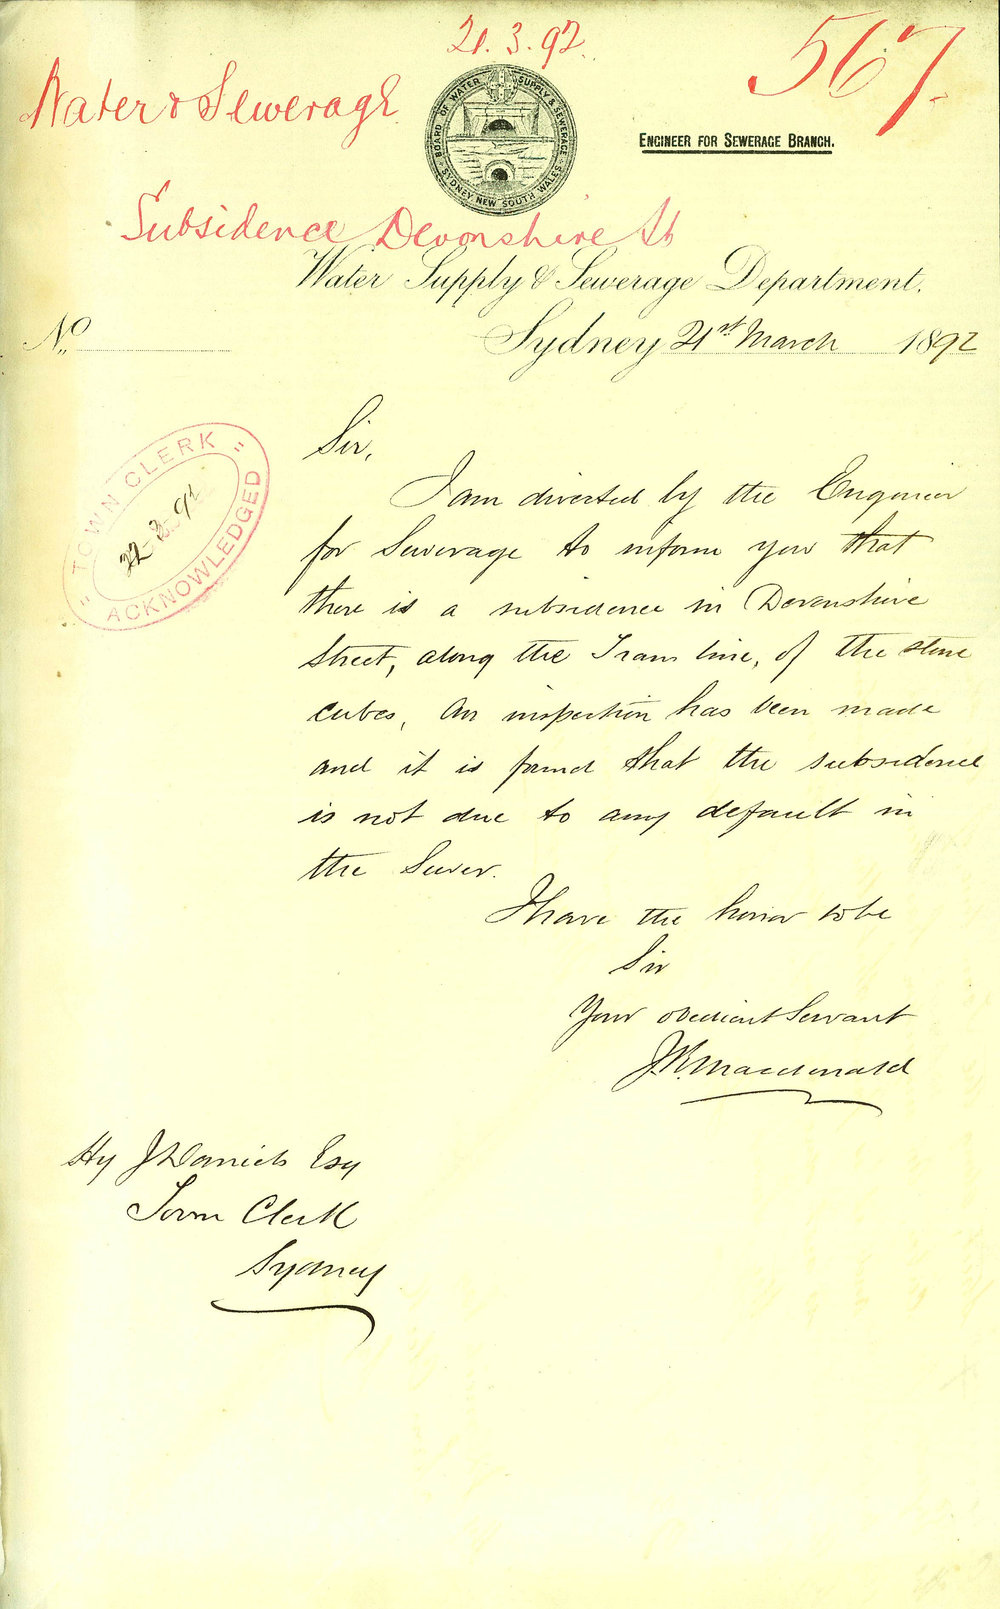 21.3.92
567
Water & Sewerage
BOARD OF WATER SUPPLY & SEWERAGE
SYDNEY, NEW SOUTH WALES
ENGINEER FOR SEWERAGE BRANCH.
Subsidence Devonshire St
Water Supply & Sewerage Department.
No.
Sydney 21st March 1892
"TOWN CLERK"
22.3.92
ACKNOWLEDGED
Sir,
I am directed by the Engineer
for Sewerage to inform you that
there is a subsidence in Devonshire
Street, along the Tram line, of the stone
cubes, An inspection has been made
and it is found that the subsidence
is not due to any default in
the Sewer.
I have the honor to be
Sir
Your obedient Servant
J.R. Macdonald
Hy J Daniels Esq
Town Clerk
Sydney